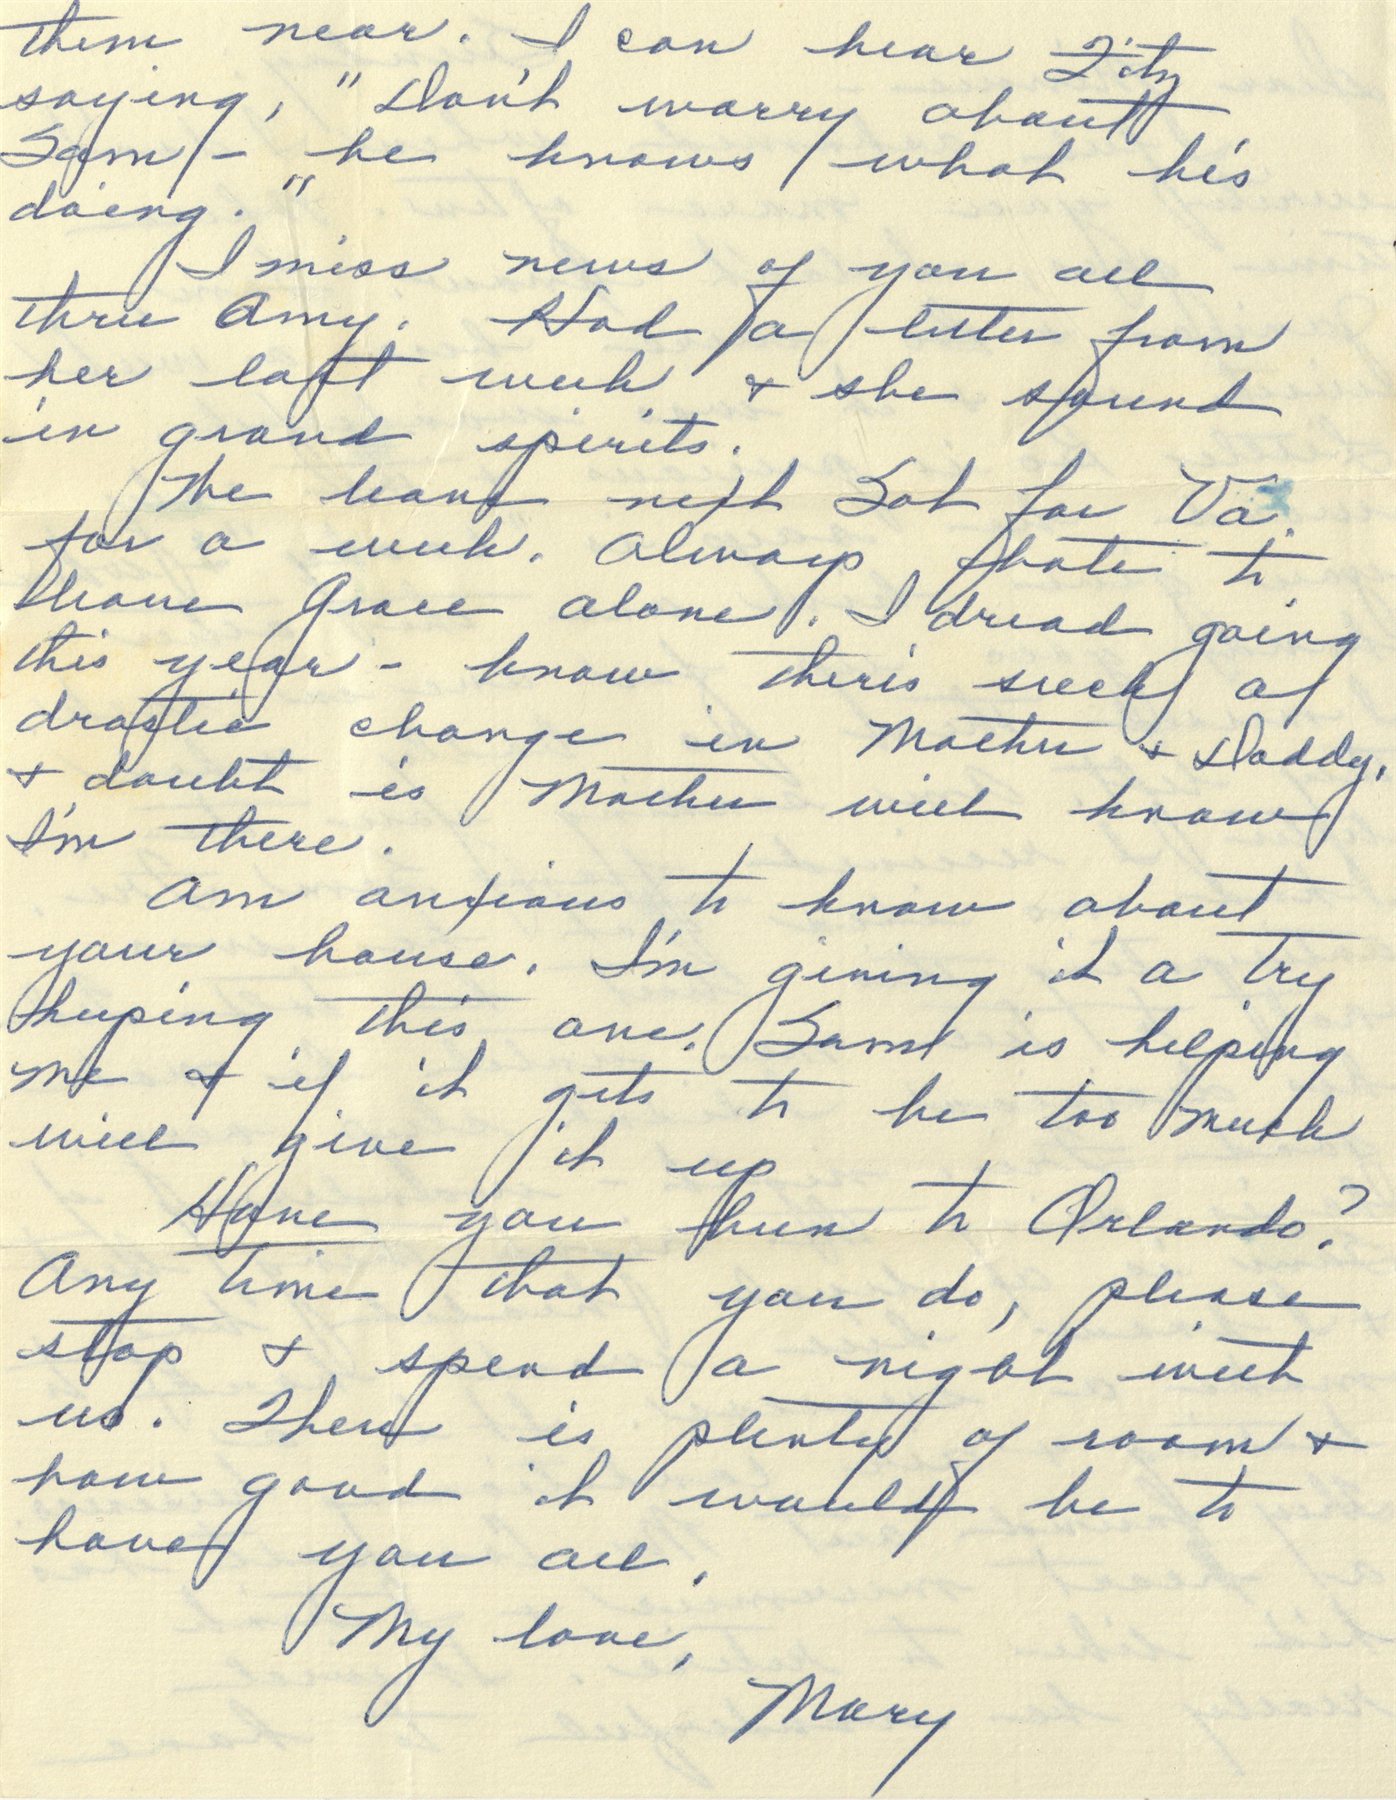 them near. I can hear Fitz
saying, "Don't worry about
Sam - he knows what he's
doing."
I miss news of you all
thru Amy. Had a letter from
her last week & she sound
in grand spirits.
We leave next Sat for Va.
for a week. Always hate to
leave Grace alone. I dread going
this year - know there's such a
drastic change in Mother & Daddy,
& doubt is Mother will know
I'm there.
Am anxious to know about
your house. I'm giving it a try
keeping this one. Sam is helping
me & if it gets to be too much
will give it up
Have you been to Orlando?
Any time that you do, please
stop & spend a night with
us. There is plenty of room &
how good it would be to
have you all.
My love,
Mary